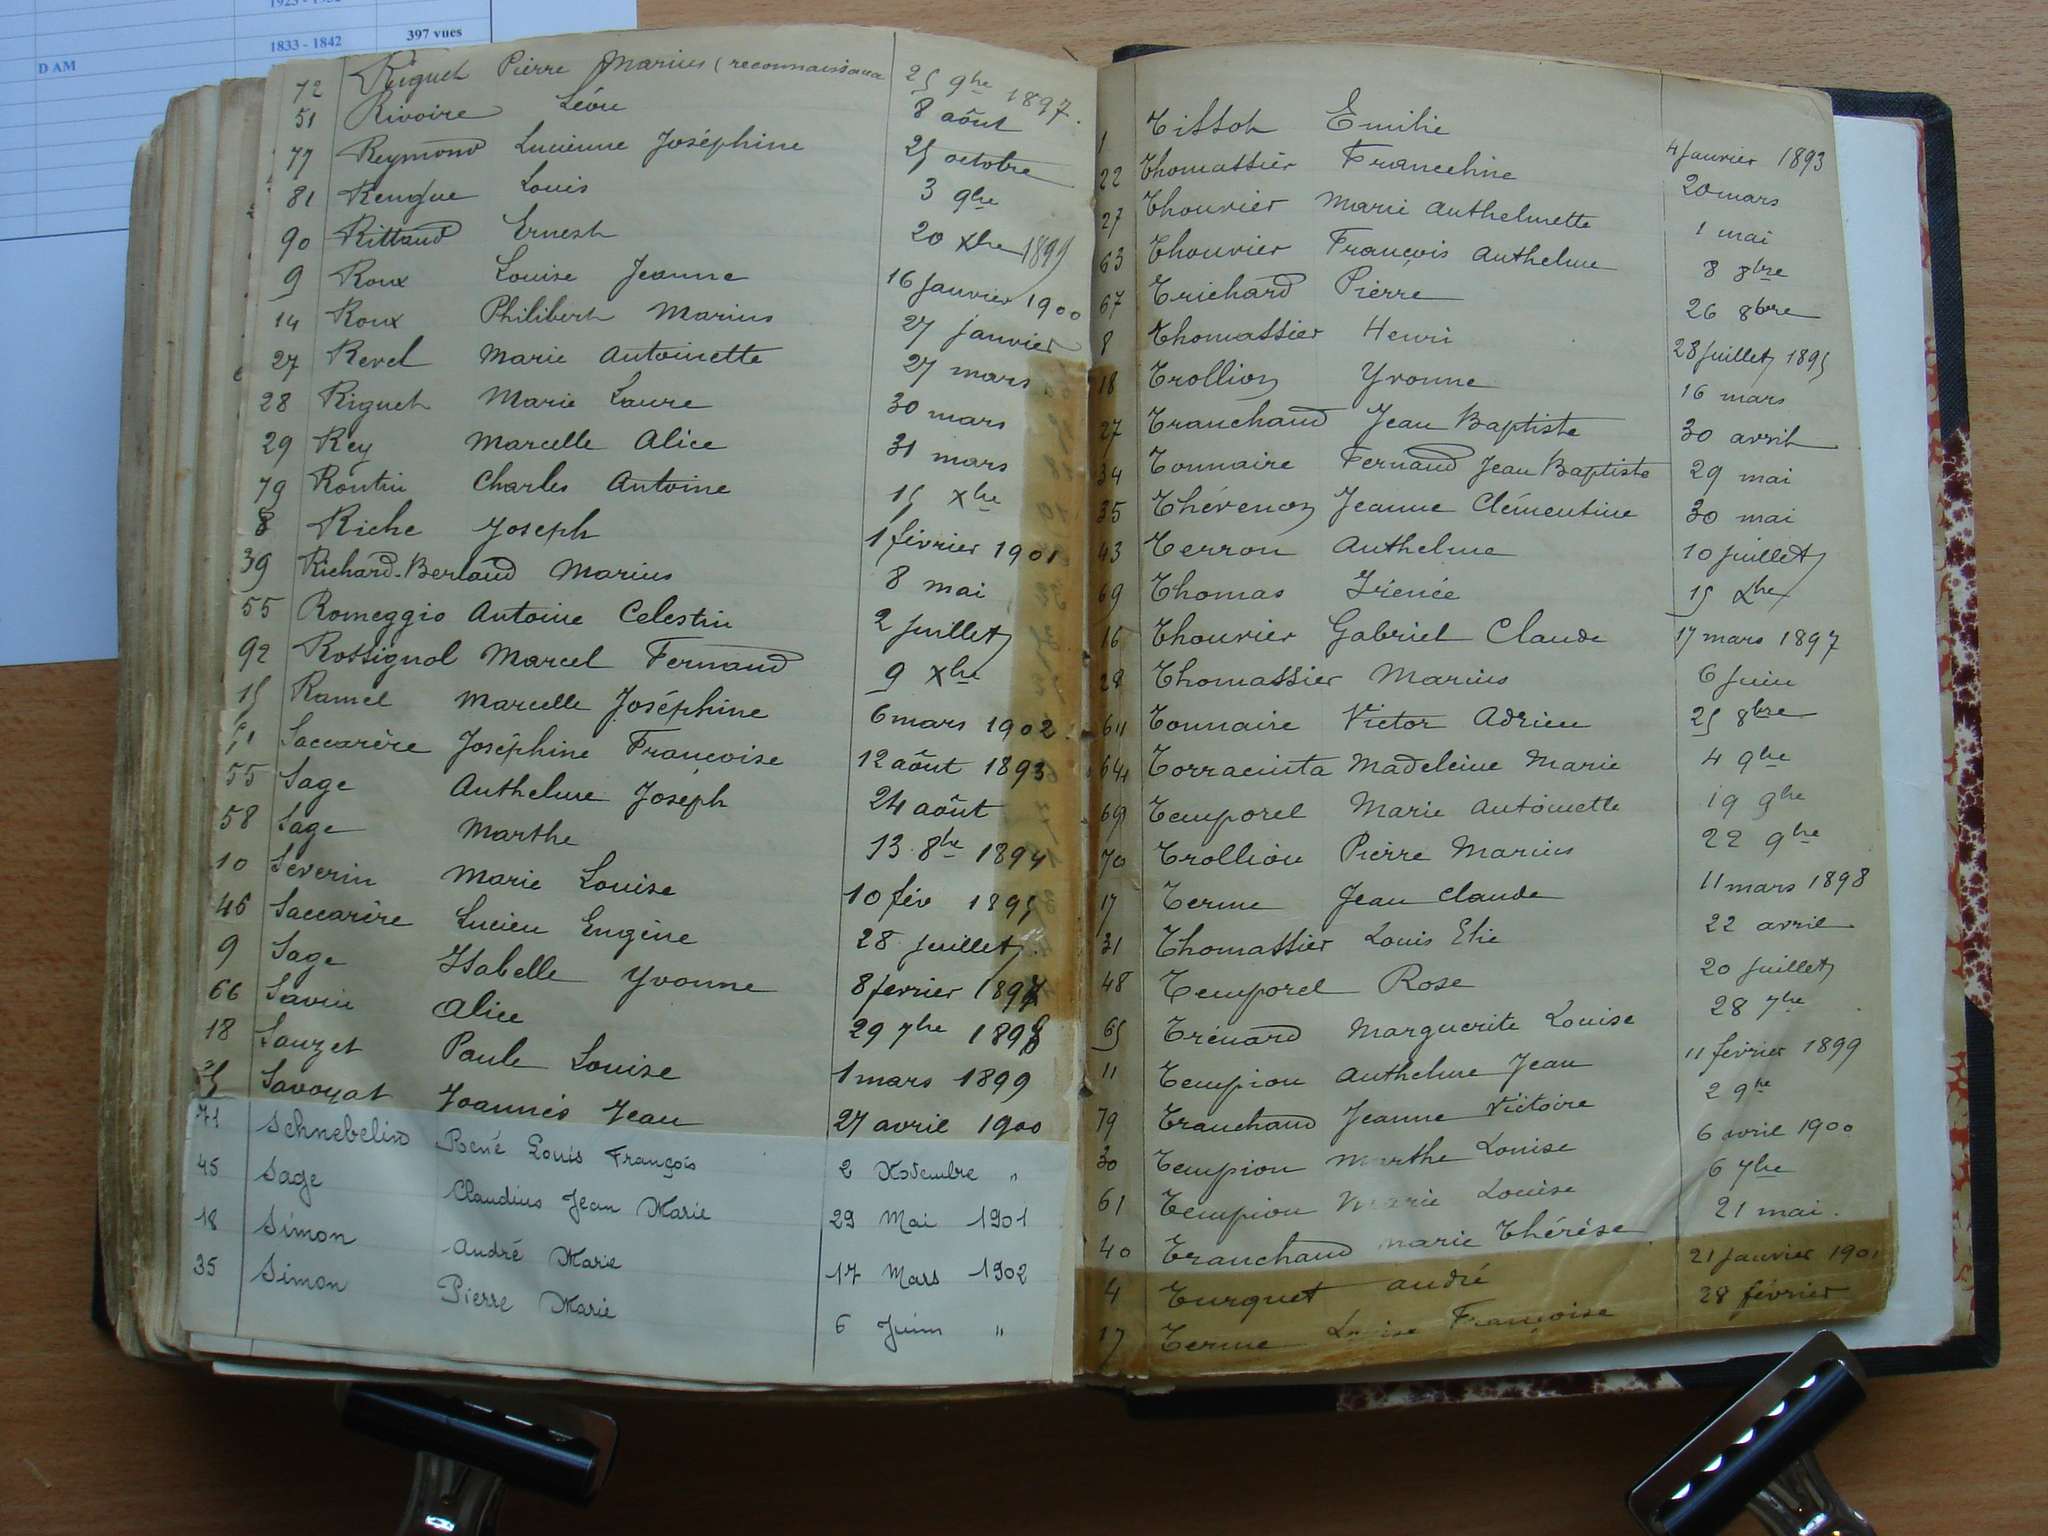 1833 - 1842 397 vues
D AM
72 Riguet Pierre Marius (reconnaissance 25 9bre 1897.
51 Rivoire Léon 8 août
77 Reymond Lucienne Joséphine 25 octobre
81 Louis 3 9bre
90 Rittaud Ernest 20 Xbre 1899
9 Roux Louise Jeanne 16 Janvier 1900
14 Roux Philibert Marius 27 janvier
27 Revel Marie Antoinette 27 mars
28 Riguet Marie Laure 30 mars
29 Rey Marcelle Alice 31 mars
79 Rontin Charles Antoine 15 Xbre
8 Riche Joseph 1 février 1901
39 Richard-Berlaud Marius 8 mai
55 Romeggio Antoine Celestin 2 Juillet
92 Rossignol Marcel Fernand 9 Xbre
15 Ramel Marcelle Joséphine 6 mars 1902
51 Saccarère Joséphine Francoise 12 août 1893
55 Sage Anthelme Joseph 24 août
58 Sage Marthe 13 8bre 1894
10 Séverin Marie Louise 10 fév 1895
46 Saccarère Lucien Eugène 28 Juillet
9 Sage Isabelle Yvonne 8 fevrier 1897
66 Savin Alice 29 7bre 1898
18 Sauzet Paule Louise 1 mars 1899
25 Savoyat Joannès Jean 27 avril 1900
71 Schnebelin René Louis François 2 Novembre "
45 Sage Claudius Jean Marie 29 Mai 1901
18 Simon André Marie 17 Mars 1902
35 Simon Pierre Marie 6 Juin "
1 Tissot Emilie 4 Janvier 1893
22 Thomassier Franceline 20 mars
27 Thouvier Marie Anthelmette 1 mai
63 Thouvier François Anthelme 8 8bre
67 Trichard Pierre 26 8bre
8 Thomassier Henri 28 Juillet 1895
18 Trollion Yvonne 16 mars
27 Tranchand Jean Baptiste 30 avril
34 Tonnaire Fernand Jean Baptiste 29 mai
35 Thévenon Jeanne Clémentine 30 mai
43 Terron Anthelme 10 juillet
69 Thomas Irénée 15 Xbre
16 Thouvier Gabriel Claude 17 mars 1897
28 Thomassier Marius 6 Juin
Tonnaire Victor Adrien 25 8bre
64 Torracinta Madeleine Marie 4 9bre
69 Temporel Marie Antoinette 19 9bre
70 Trollion Pierre Marius 22 9bre
17 Terme Jean Claude 11 mars 1898
31 Thomassier Louis Elie 22 avril
48 Temporel Rose 20 Juillet
65 Trénard Marguerite Louise 28 7bre
11 Tempion Anthelme Jean 11 fevrier 1899
79 Tranchand Jeanne Victoire 2 9bre
30 Tempion Marthe Louise 6 avril 1900
61 Tempion Marie Louise 6 7bre
40 Tranchand Marie Thérèse 21 mai.
4 Turquet André 21 Janvier 1901
17 Terme Louise Françoise 28 février